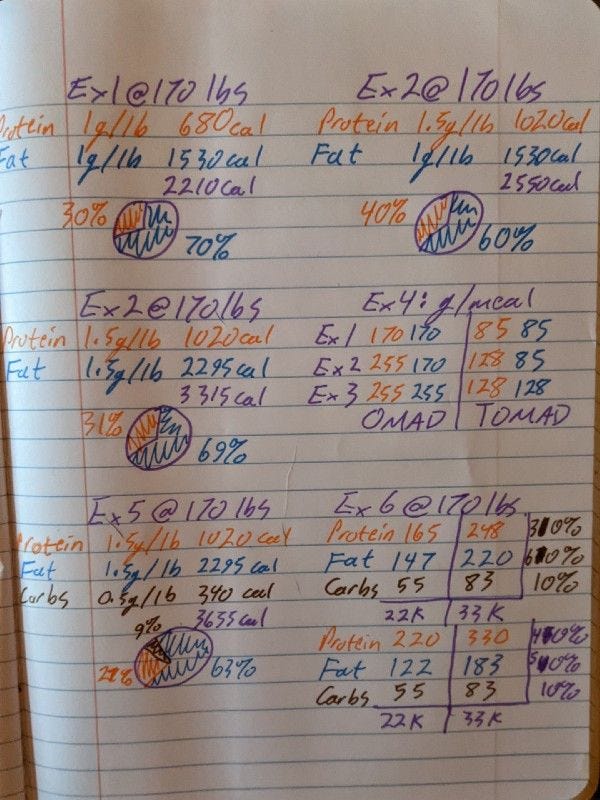 Ex1 @ 170 lbs
Protein 1g/lb 680cal
Fat 1g/lb 1530cal
2210cal
30%
70%
Ex2 @ 170 lbs
Protein 1.5g/lb 1020cal
Fat 1g/lb 1530cal
2550cal
40%
60%
Ex2 @ 170 lbs
Protein 1.5g/lb 1020cal
Fat 1.5g/lb 2295cal
3315cal
31%
69%
Ex4: g/meal
Ex1 170 170 85 85
Ex2 255 170 128 85
Ex3 255 255 128 128
OMAD TOMAD
Ex5 @ 170 lbs
Protein 1.5g/lb 1020 cal
Fat 1.5g/lb 2295 cal
Carbs 0.5g/lb 340 cal
3655cal
9%
63%
Ex6 @ 170 lbs
Protein 165 248 30%
Fat 147 220 60%
Carbs 55 83 10%
22K 33K
Protein 220 330 40%
Fat 122 183 50%
Carbs 55 83 10%
22K 33K